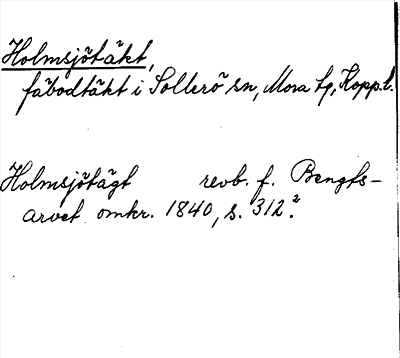 Holmsjötäkt,
fäbodtäkt i Sollerö sn, Mora tg, Kopp.l.
Holmsjötägt revb. f. Bengts-
arvet omkr. 1840, s. 312.²